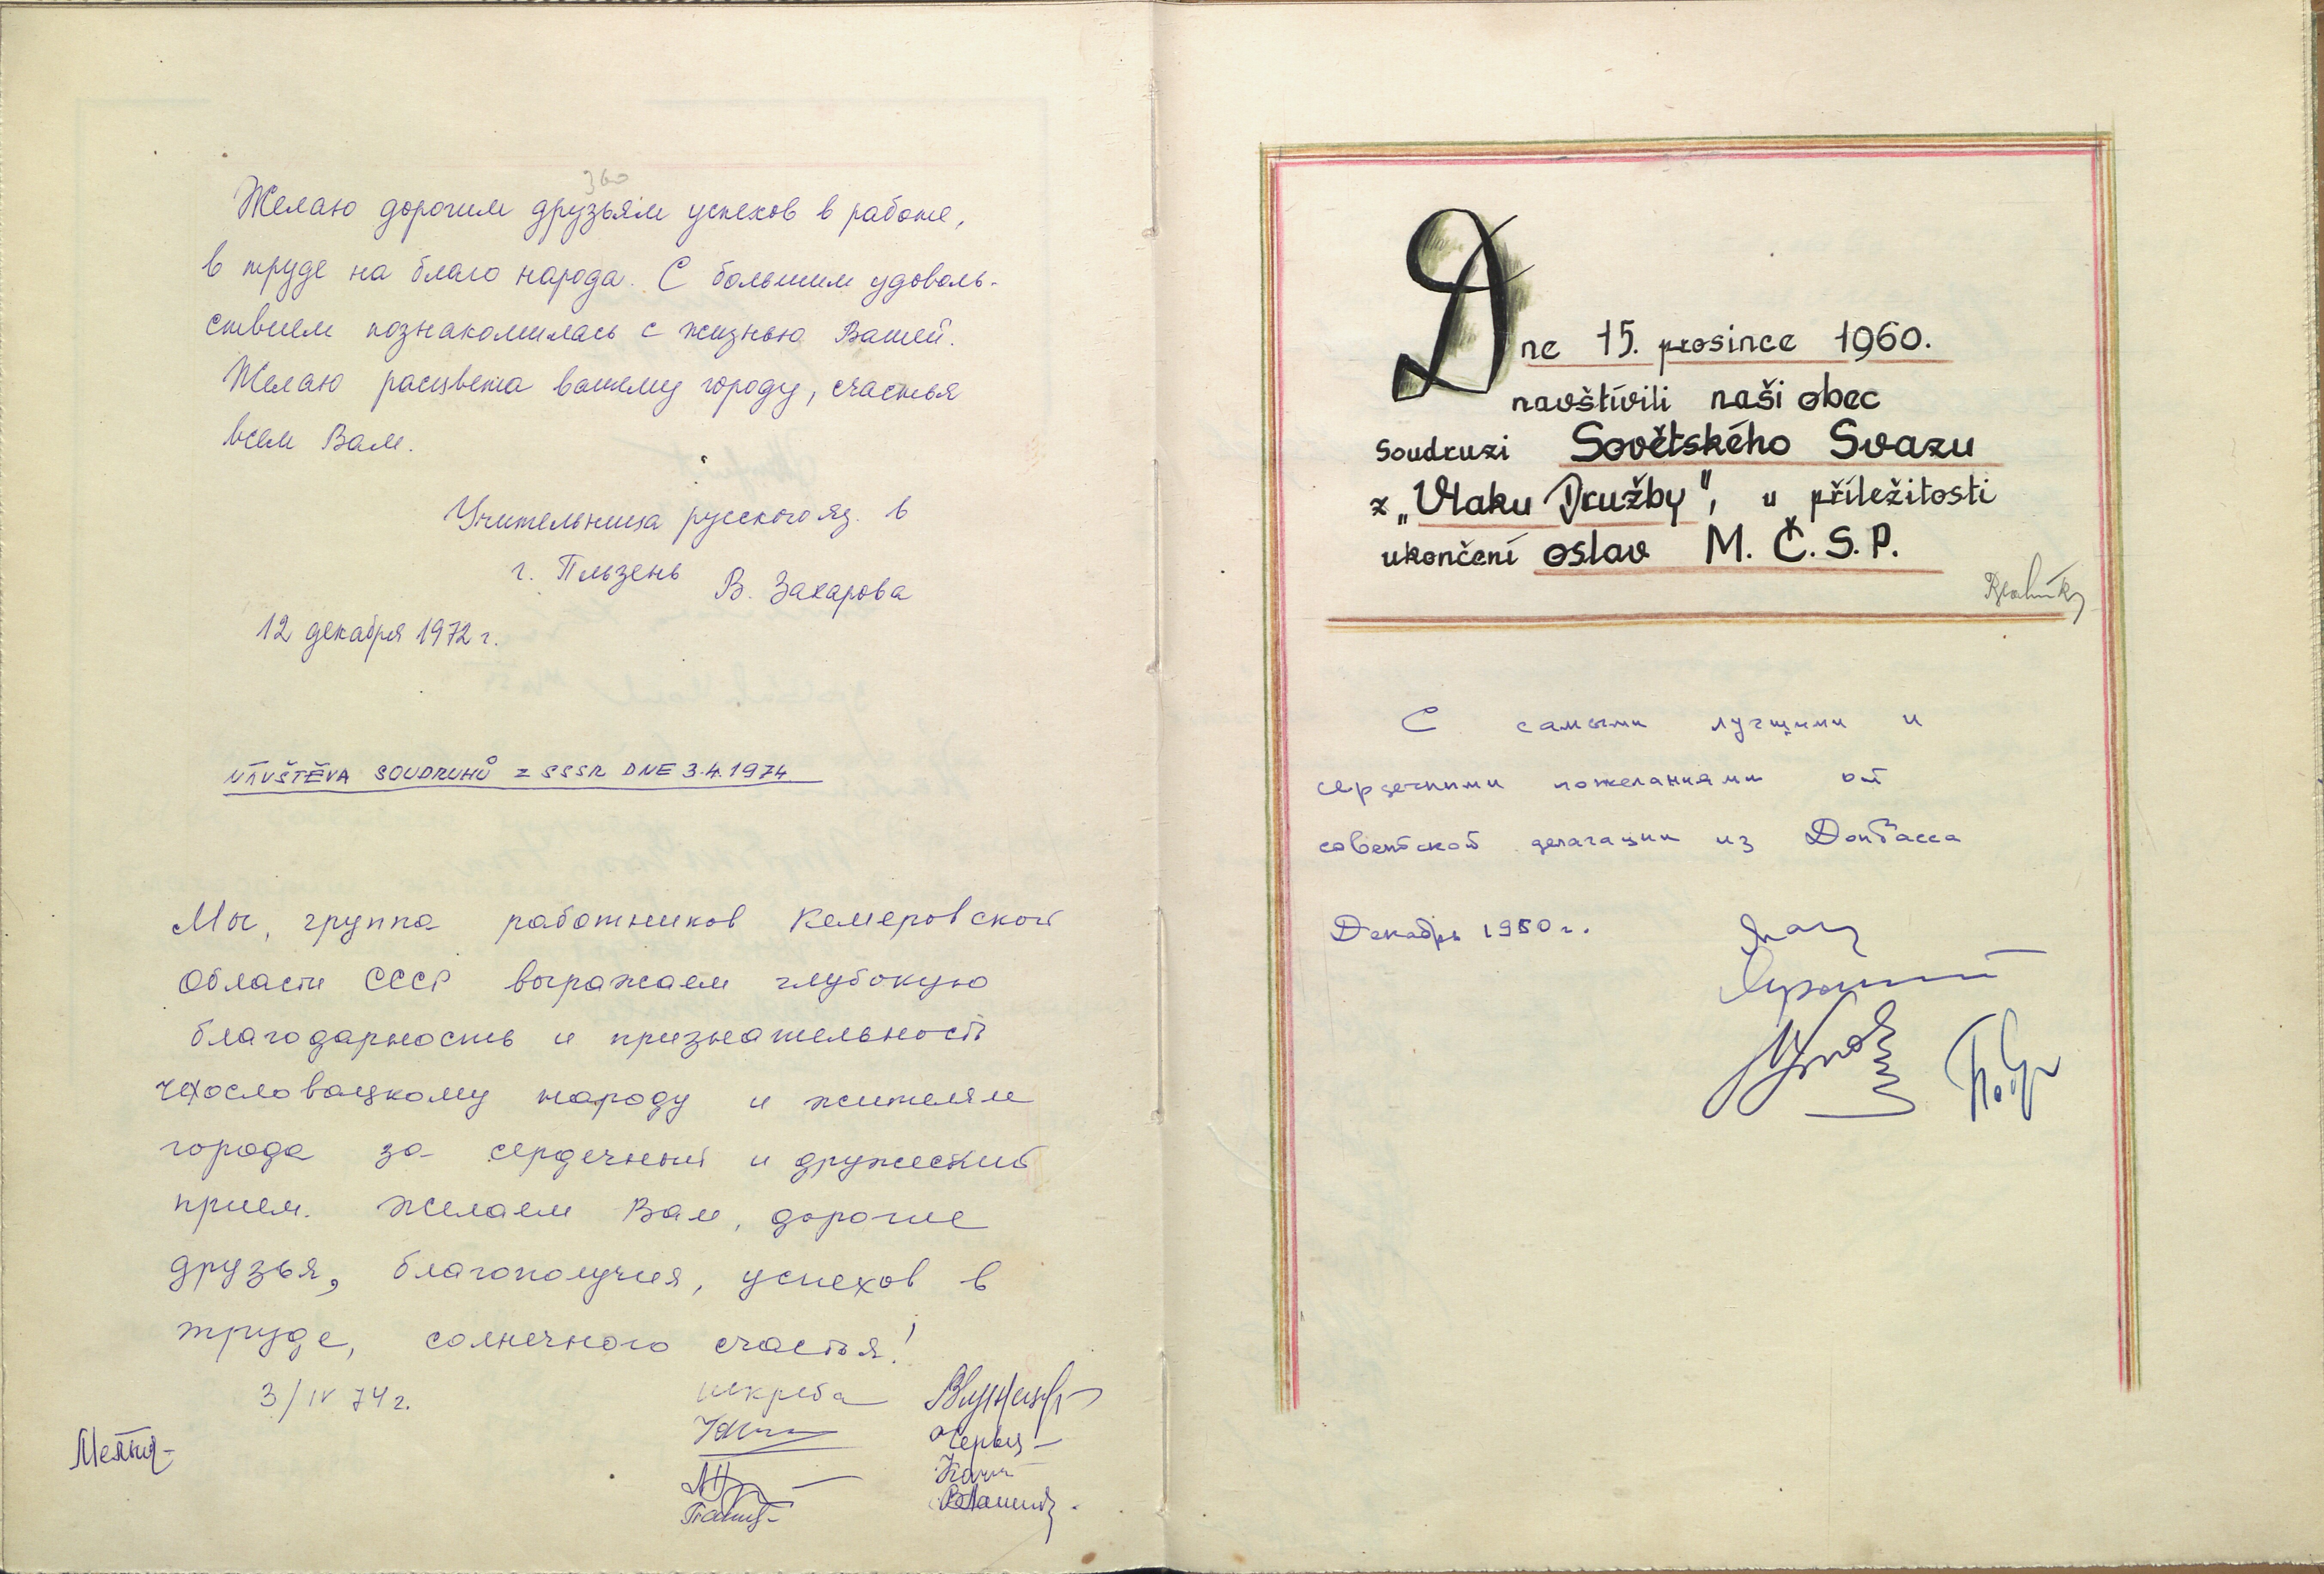 360
Желаю дорогим друзьям успехов в работе,
в труде на благо народа. С большим удоволь-
ствием познакомилась с жизнью Вашей.
Желаю расцвета вашему городу, счастья
всем Вам.
Учительница русского яз. в
г. Пльзень В. Захарова
12 декабря 1972 г.
NÁVŠTĚVA SOUDRUHŮ Z SSSR DNE 3.4.1974
Мы, группа работников Кемеровской
Области СССР выражаем глубокую
благодарность и признательность
чехословацкому народу и жителям
города за сердечный и дружеский
прием. Желаем Вам, дорогие
друзья, благополучия, успехов в
труде, солнечного счастья!
3/IV 74 г.
Dne 15. prosince 1960.
navštívili naši obec
soudruzi Sovětského Svazu
z „Vlaku Družby", u příležitosti
ukončení oslav M. Č. S. P.
С самыми лучшими и
сердечными пожеланиями от
советской делагации из Донбасса
Декабрь 1960 г.